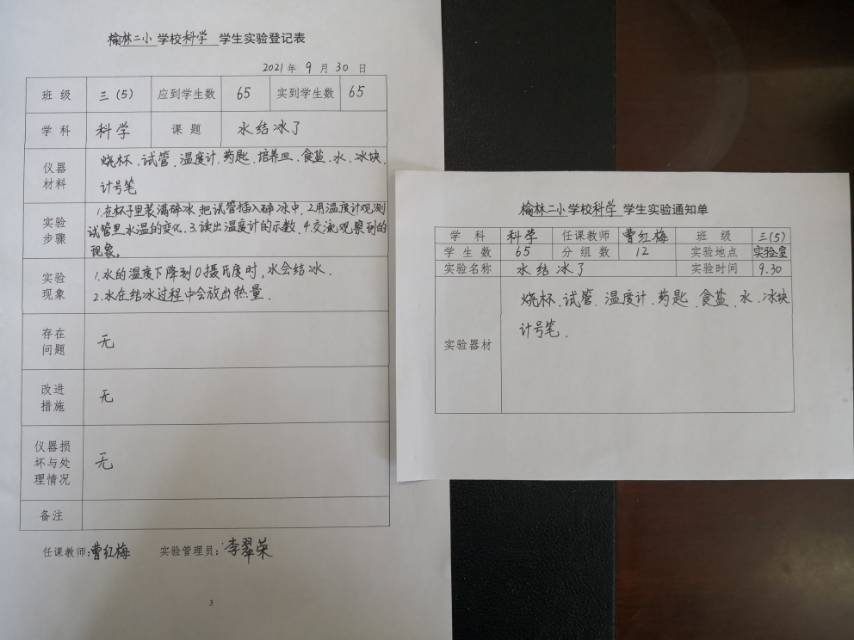 榆林二小学校科学 学生实验登记表
2021年 9月 30日
班级 三(5) 应到学生数 65 实到学生数 65
学科 科学 课题 水结冰了
仪器材料 烧杯、试管、温度计、药匙、培养皿、食盐、水、冰块、
计号笔
实验步骤 1.在杯子里装满碎冰把试管插入碎冰中.2.用温度计观测
试管里水温的变化.3.读出温度计的示数.4.交流观察到的
现象。
实验现象 1.水的温度下降到0摄氏度时,水会结冰.
2.水在结冰过程中会放出热量.
存在问题 无
改进措施 无
仪器损坏与处理情况 无
备注
任课教师:曹红梅 实验管理员:李翠荣
3
榆林二小学校科学 学生实验通知单
学科 科学 任课教师 曹红梅 班级 三(5)
学生数 65 分组数 12 实验地点 实验室
实验名称 水结冰了 实验时间 9.30
实验器材 烧杯、试管、温度计、药匙、食盐、水、冰块
计号笔.